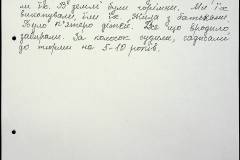 ми їх. В землі були горішки. Ми їх
викопували, їли їх. Жила з батьками.
Було п'ятеро дітей. Все що вродило,
забирали. За колосок судили, садили
до тюрми на 5-10 років.